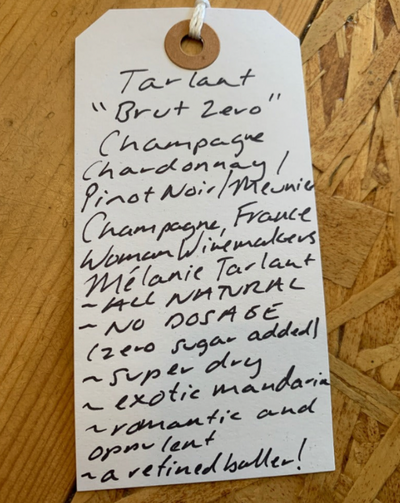 Tarlant
"Brut Zero"
Champagne
Chardonnay/
Pinot Noir/Meunier
Champagne, France
Woman Winemakers
Mélanie Tarlant
~ALL NATURAL
~NO DOSAGE
(zero sugar added)
~super dry
~exotic mandarin
~romantic and
opulent
~a refined baller!